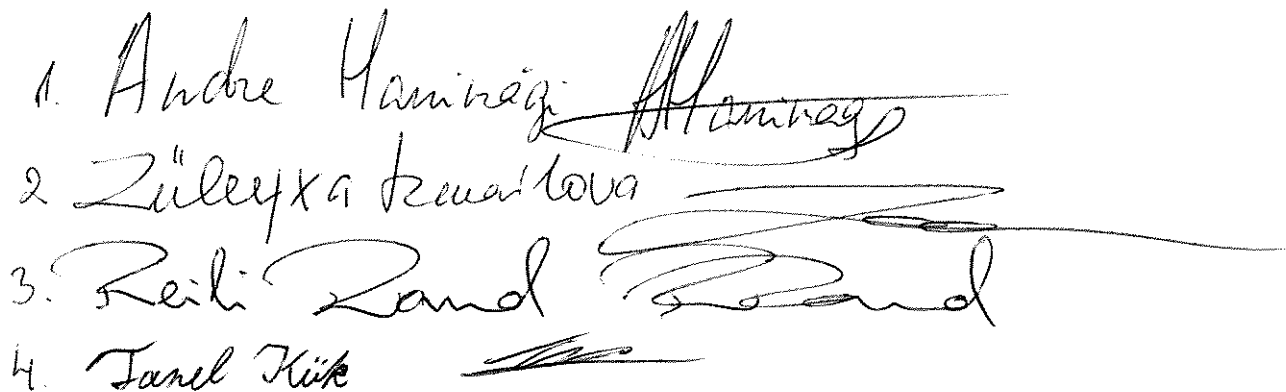 1. Andre Haninägi AHaninägi
2 Züleyxa Izmailova
3. Reili Rand RRand
4. Tanel Kiik